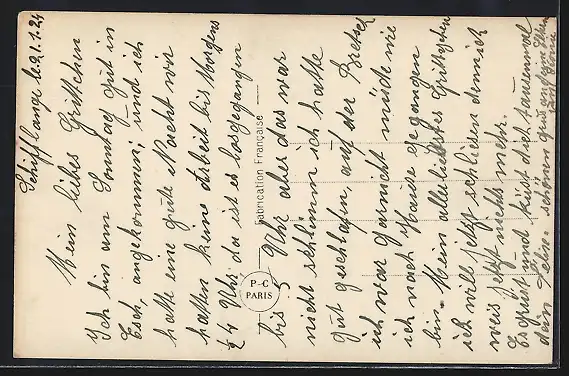 Schifflange le 2.1.24
Mein liebes Grittchen
Ich bin am Sonntag gut in
Esch, angekommen; und ich
hatte eine gute Nacht wir
hatten keine Arbeit bis Morgens
4 Uhr da ist es losgegangen
bis 5 Uhr aber das war
nicht schlimm ich hatte
gut geschlafen, auf der
ich war garnicht müde wie
ich nach Hause gegangen
bin. Mein allerliebstes Grittchen
ich will jetzt schliesen denn ich
weis jetzt nichts mehr.
Es grüst und küst dich tausenmal
dein schönen grus an deine Eltern
Fabrication Française
P-C
PARIS